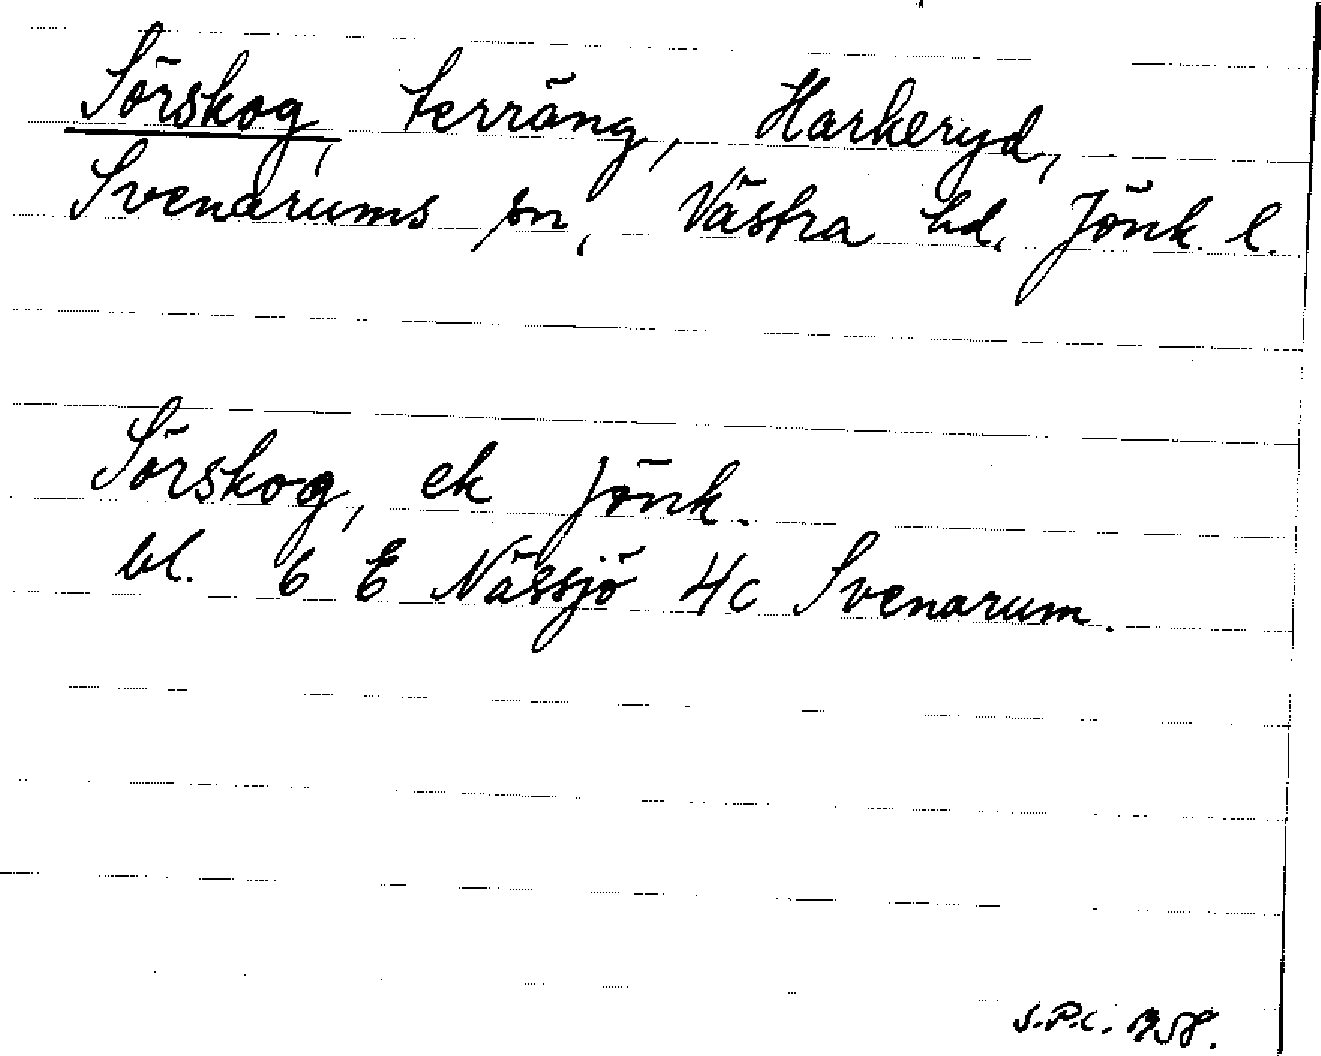 Sörskog, terräng, Harkeryd,
Svenarums sn, Västra hd. Jönk. l.
Sörskog, ek Jönk.
bl. 6 E Nässjö 4c Svenarum.